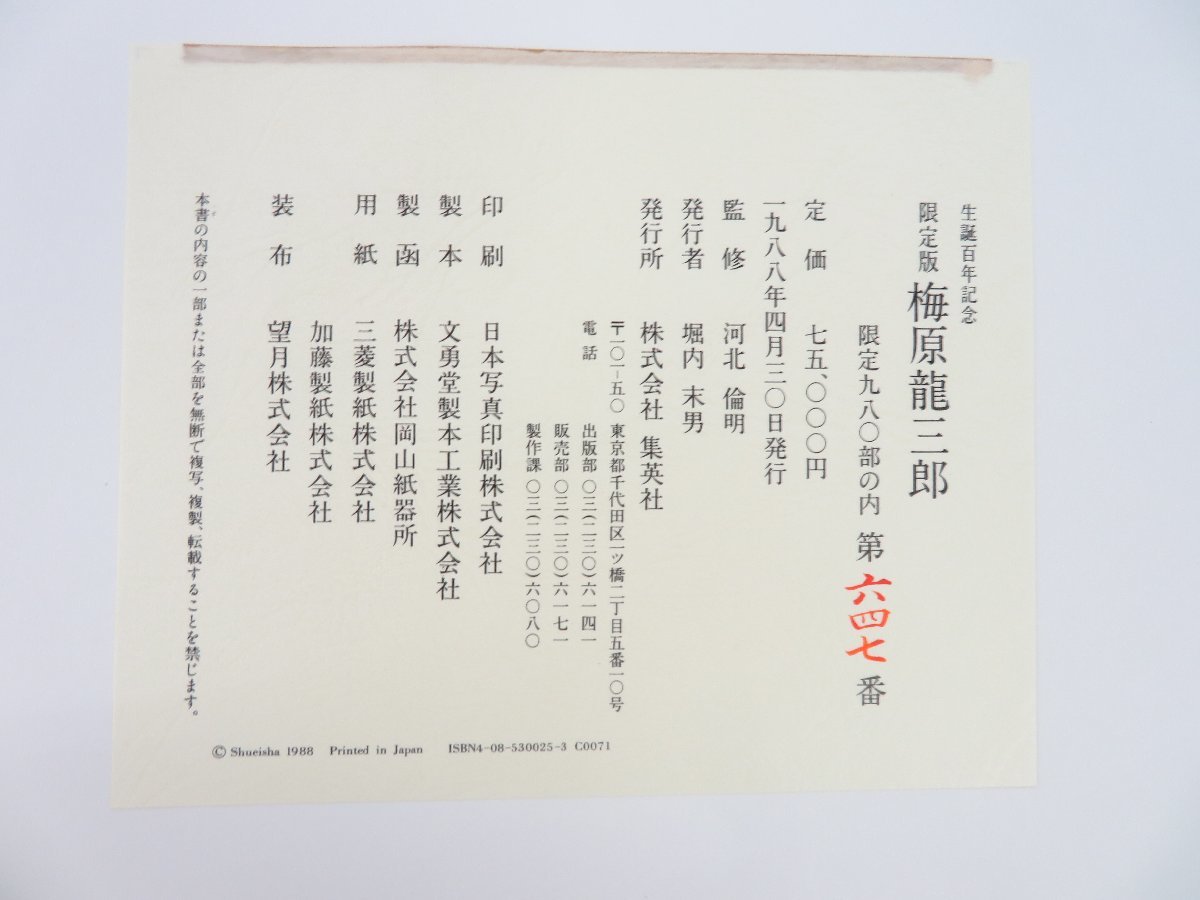 生誕百年記念
限定版 梅原龍三郎
限定九八〇部の内 第六四七番
定価 七五、〇〇〇円
一九八八年四月三〇日発行
監修 河北 倫明
発行者 堀内 末男
発行所 株式会社 集英社
〒一〇一-五〇 東京都千代田区一ツ橋二丁目五番一〇号
電話 出版部 〇三(二三〇)六一四一
販売部 〇三(二三〇)六一七一
製作課 〇三(二三〇)六〇八〇
印刷 日本写真印刷株式会社
製本 文勇堂製本工業株式会社
製函 株式会社岡山紙器所
用紙 三菱製紙株式会社
加藤製紙株式会社
装布 望月株式会社
本書の内容の一部または全部を無断で複写、複製、転載することを禁じます。
© Shueisha 1988 Printed in Japan ISBN4-08-530025-3 C0071